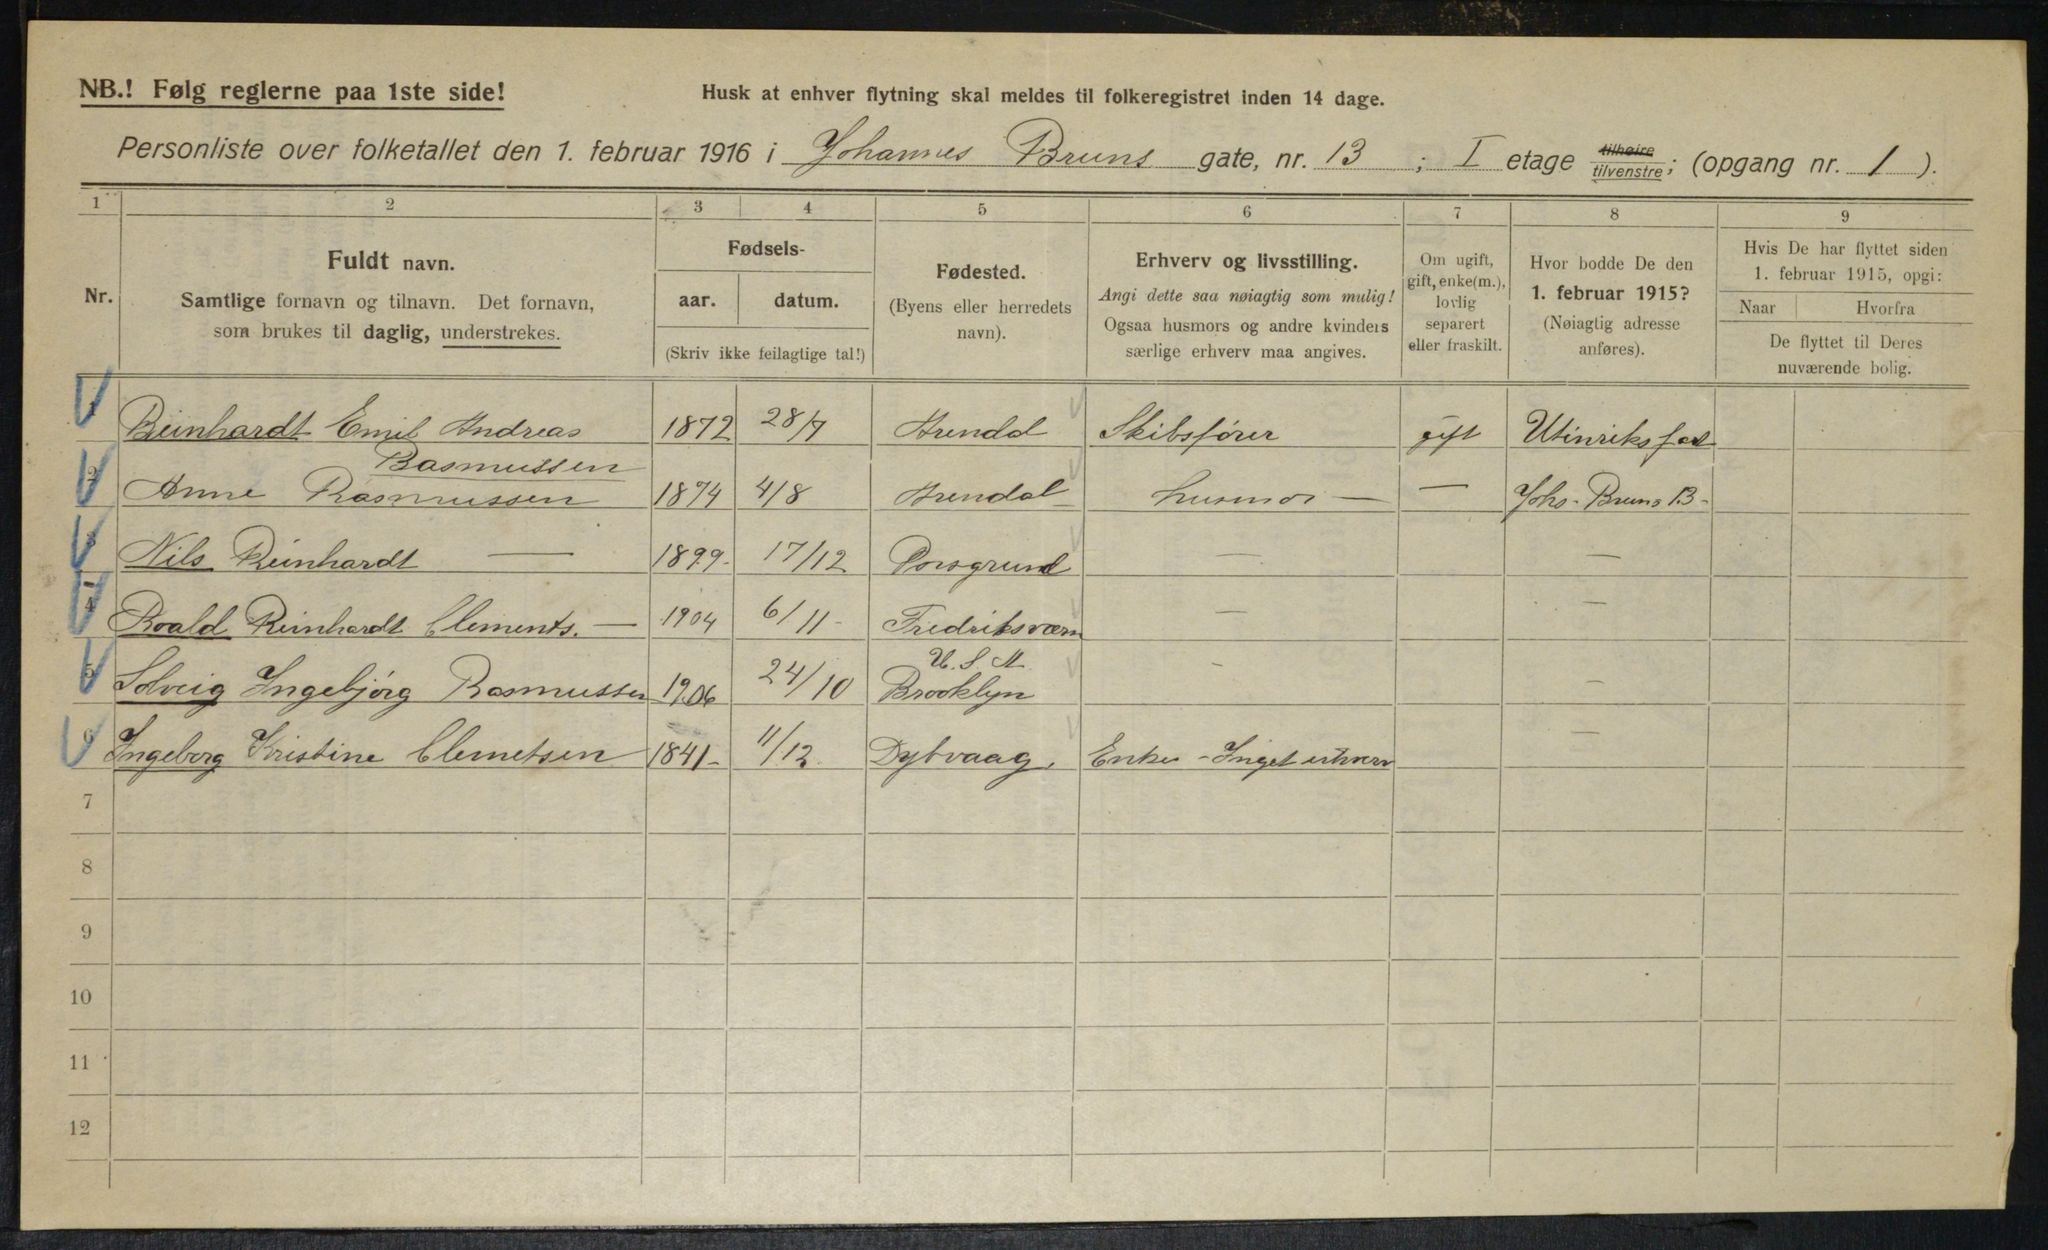 NB.! Følg reglerne paa 1ste side!
Husk at enhver flytning skal meldes til folkeregistret inden 14 dage.
Personliste over folketallet den 1. februar 1916 i Johannes Bruns gate, nr. 13 ; I etage tilhøire tilvenstre ; (opgang nr. 1 ).
1 2 3 4 5 6 7 8 9
Nr.
Fuldt navn.
Samtlige fornavn og tilnavn. Det fornavn,
som brukes til daglig, understrekes.
Fødsels-
aar. datum.
(Skriv ikke feilagtige tal!)
Fødested.
(Byens eller herredets
navn).
Erhverv og livsstilling.
Angi dette saa nøiagtig som mulig!
Ogsaa husmors og andre kvinders
særlige erhverv maa angives.
Om ugift,
gift, enke(m.),
lovlig
separert
eller fraskilt.
Hvor bodde De den
1. februar 1915?
(Nøiagtig adresse
anføres).
Hvis De har flyttet siden
1. februar 1915, opgi:
Naar Hvorfra
De flyttet til Deres
nuværende bolig.
1 Reinhardt Emil Andreas 1872 28/7 Arendal Skibsfører gift Utinriksfart
Rasmussen
2 Anne Rasmussen 1874 4/8 Arendal husmor — — Johs. Bruns 13 -
3 Nils Reinhardt — 1899 17/12 Porsgrund — —
4 Roald Reinhardt Clements. — 1904 6/11 Fredriksværn — —
U.S.A.
5 Solveig Ingebjørg Rasmussen 1906 24/10 Brooklyn - —
6 Ingeborg Kristine Clemetsen 1841 11/12 Dybvaag, Enke - Inget erhverv —
7
8
9
10
11
12